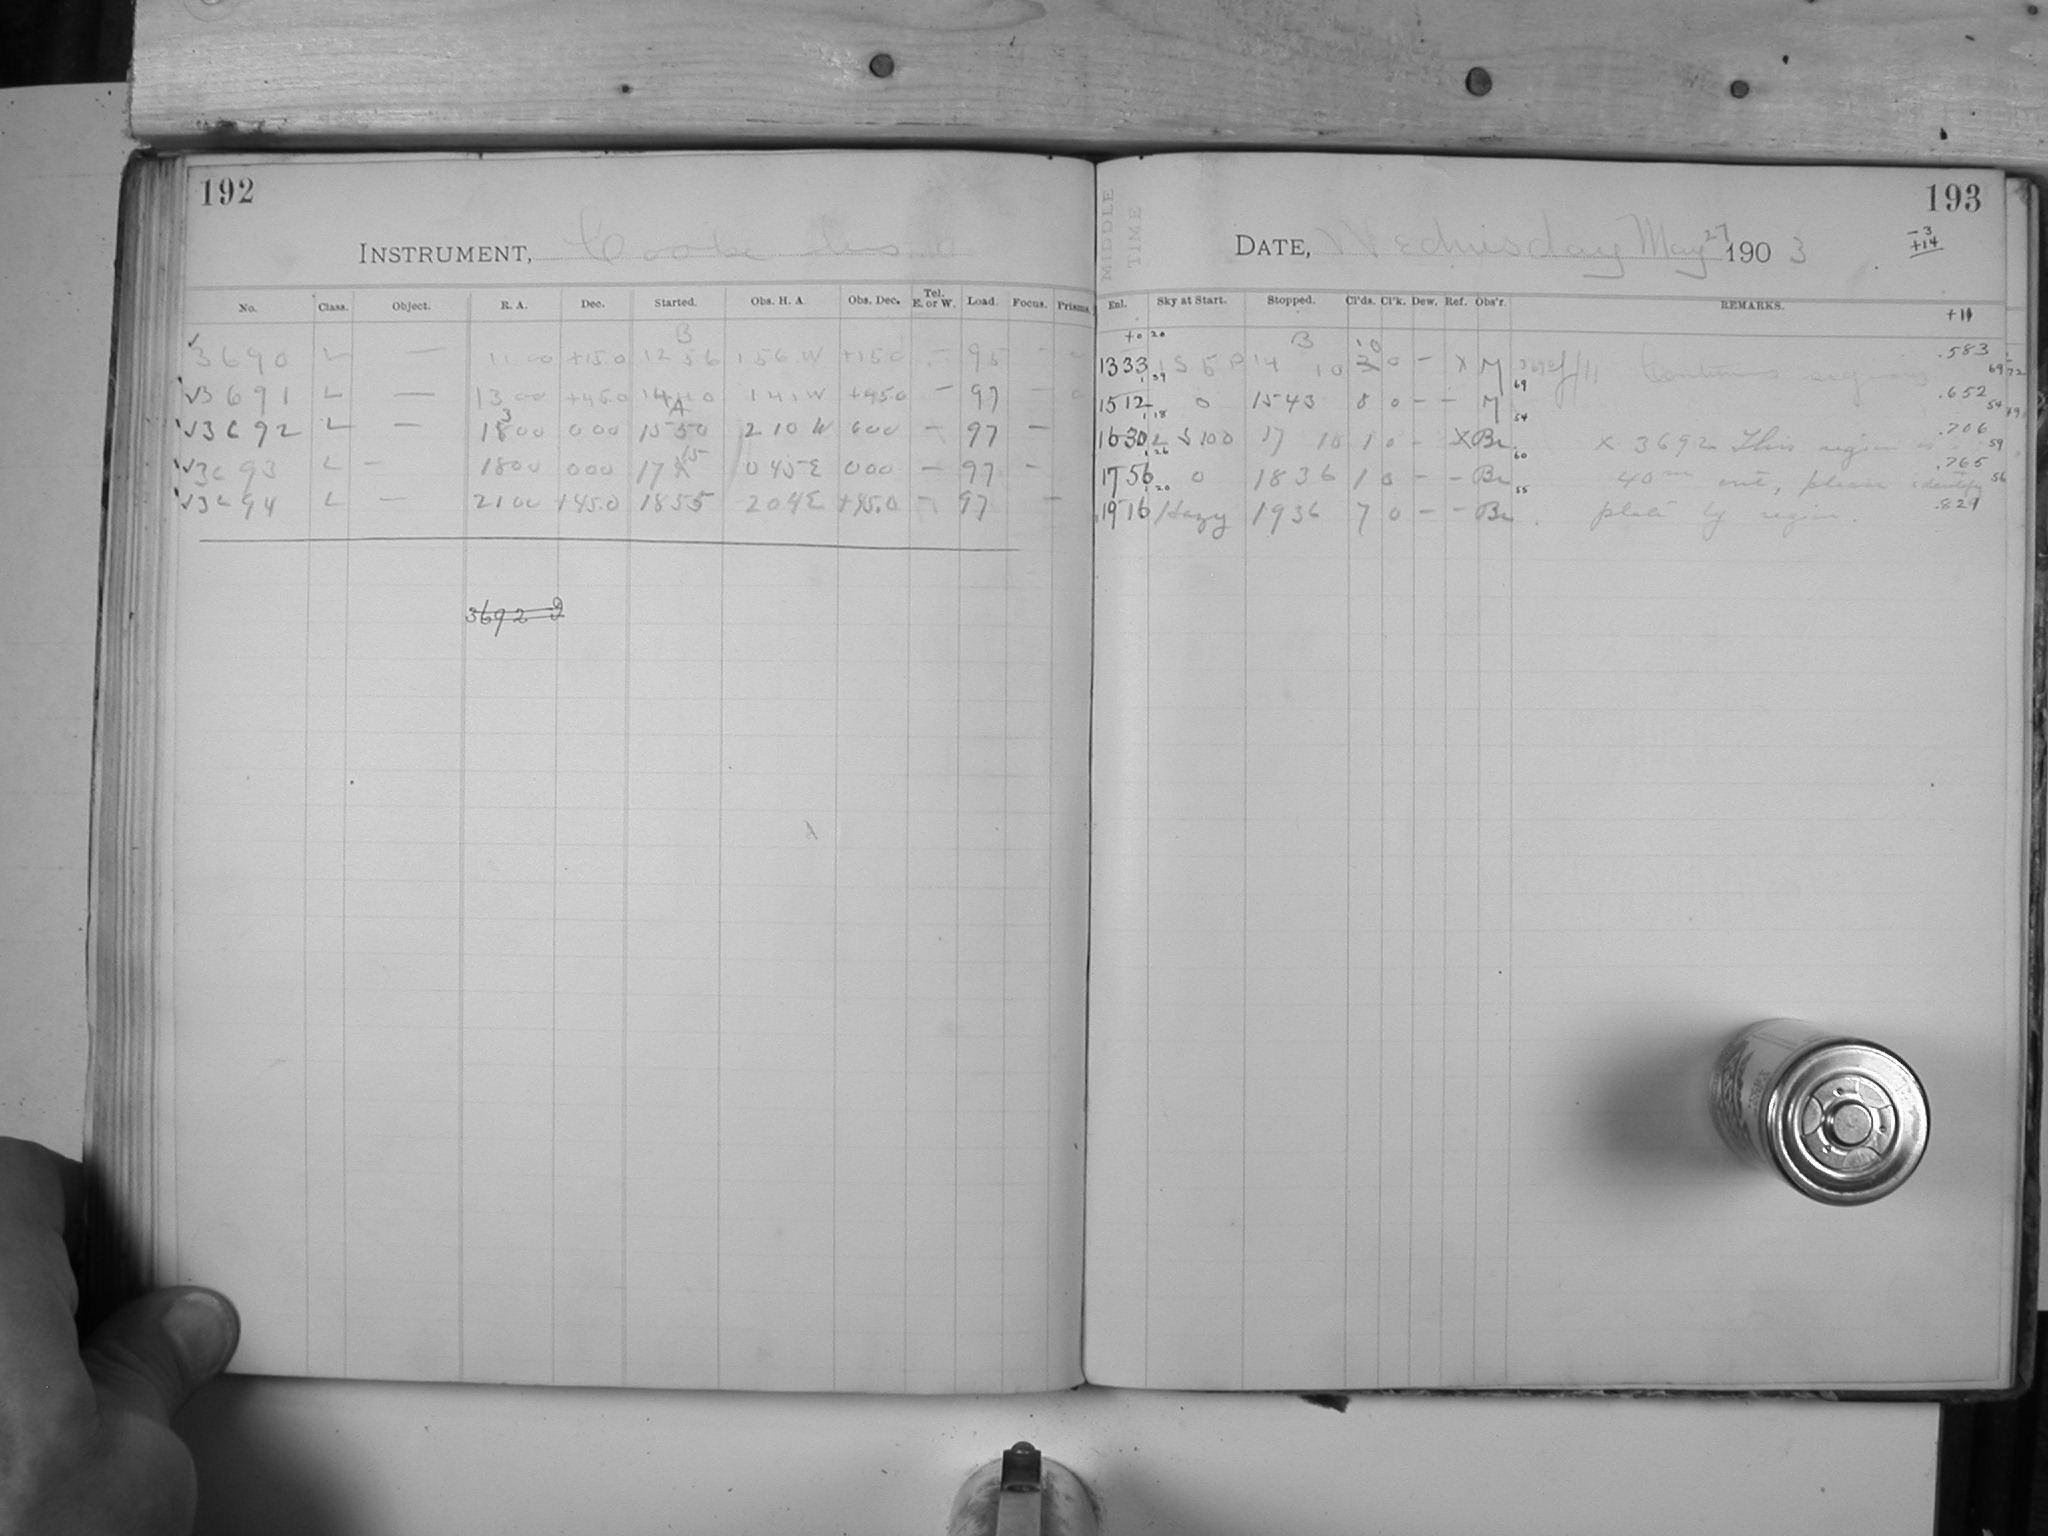 192
INSTRUMENT, Cooke lens
No. Class. Object. R. A. Dec. Started. Obs. H. A. Obs. Dec. Tel. E. or W. Load. Focus. Prisms.
B
3690 L — 11 00 +15.0 12 56 1 56 W +15.0 — 95 — 0
√3691 L — 13 00 +45.0 14 40 1 41 W +45.0 — 97 — 0
3 A
√3692 L — 18 00 0 00 15 50 2 10 W 0 00 — 97 —
15
√3693 L — 18 00 0 00 17 0 45 E 0 00 — 97 —
√3694 L — 21 00 +45.0 18 55 2 04 E +45.0 — 97 —
3692
193
MIDDLE
TIME
DATE, Wednesday May 27 1903
-3
+14
Enl. Sky at Start. Stopped. Cl'ds. Cl'k. Dew. Ref. Obs'r. REMARKS.
+0 20 B 10
13 33 1 S 5 P 14 10 2 0 — X M .583
1 39 69 69 72
15 12 0 15 43 8 0 — — M .652
1 18 54 54
16 30 2 S 100 17 10 1 0 — X Br. x 3692 This region is .706
1 26 60 59
17 56 0 18 36 1 0 — — Br 40m out, please identify .765
1 20 55 56
19 16 Hazy 19 36 7 0 — — Br. plate by region. .829